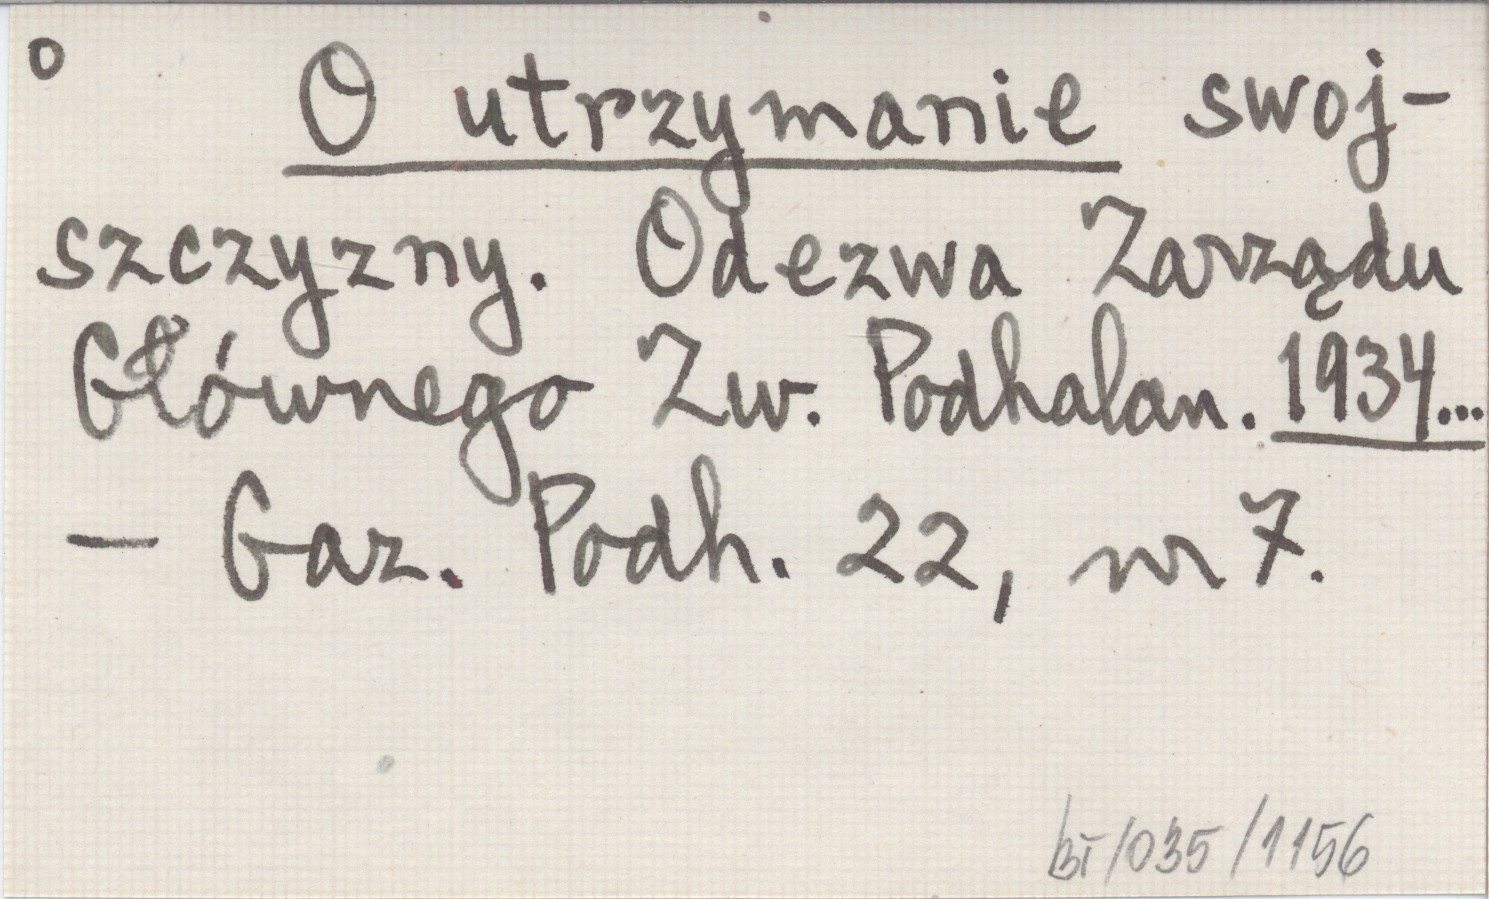 o O utrzymanie swoj-
szczyzny. Odezwa Zarządu
Głównego Zw. Podhalan. 1934...
— Gaz. Podh. 22, nr 7.
/035/1156